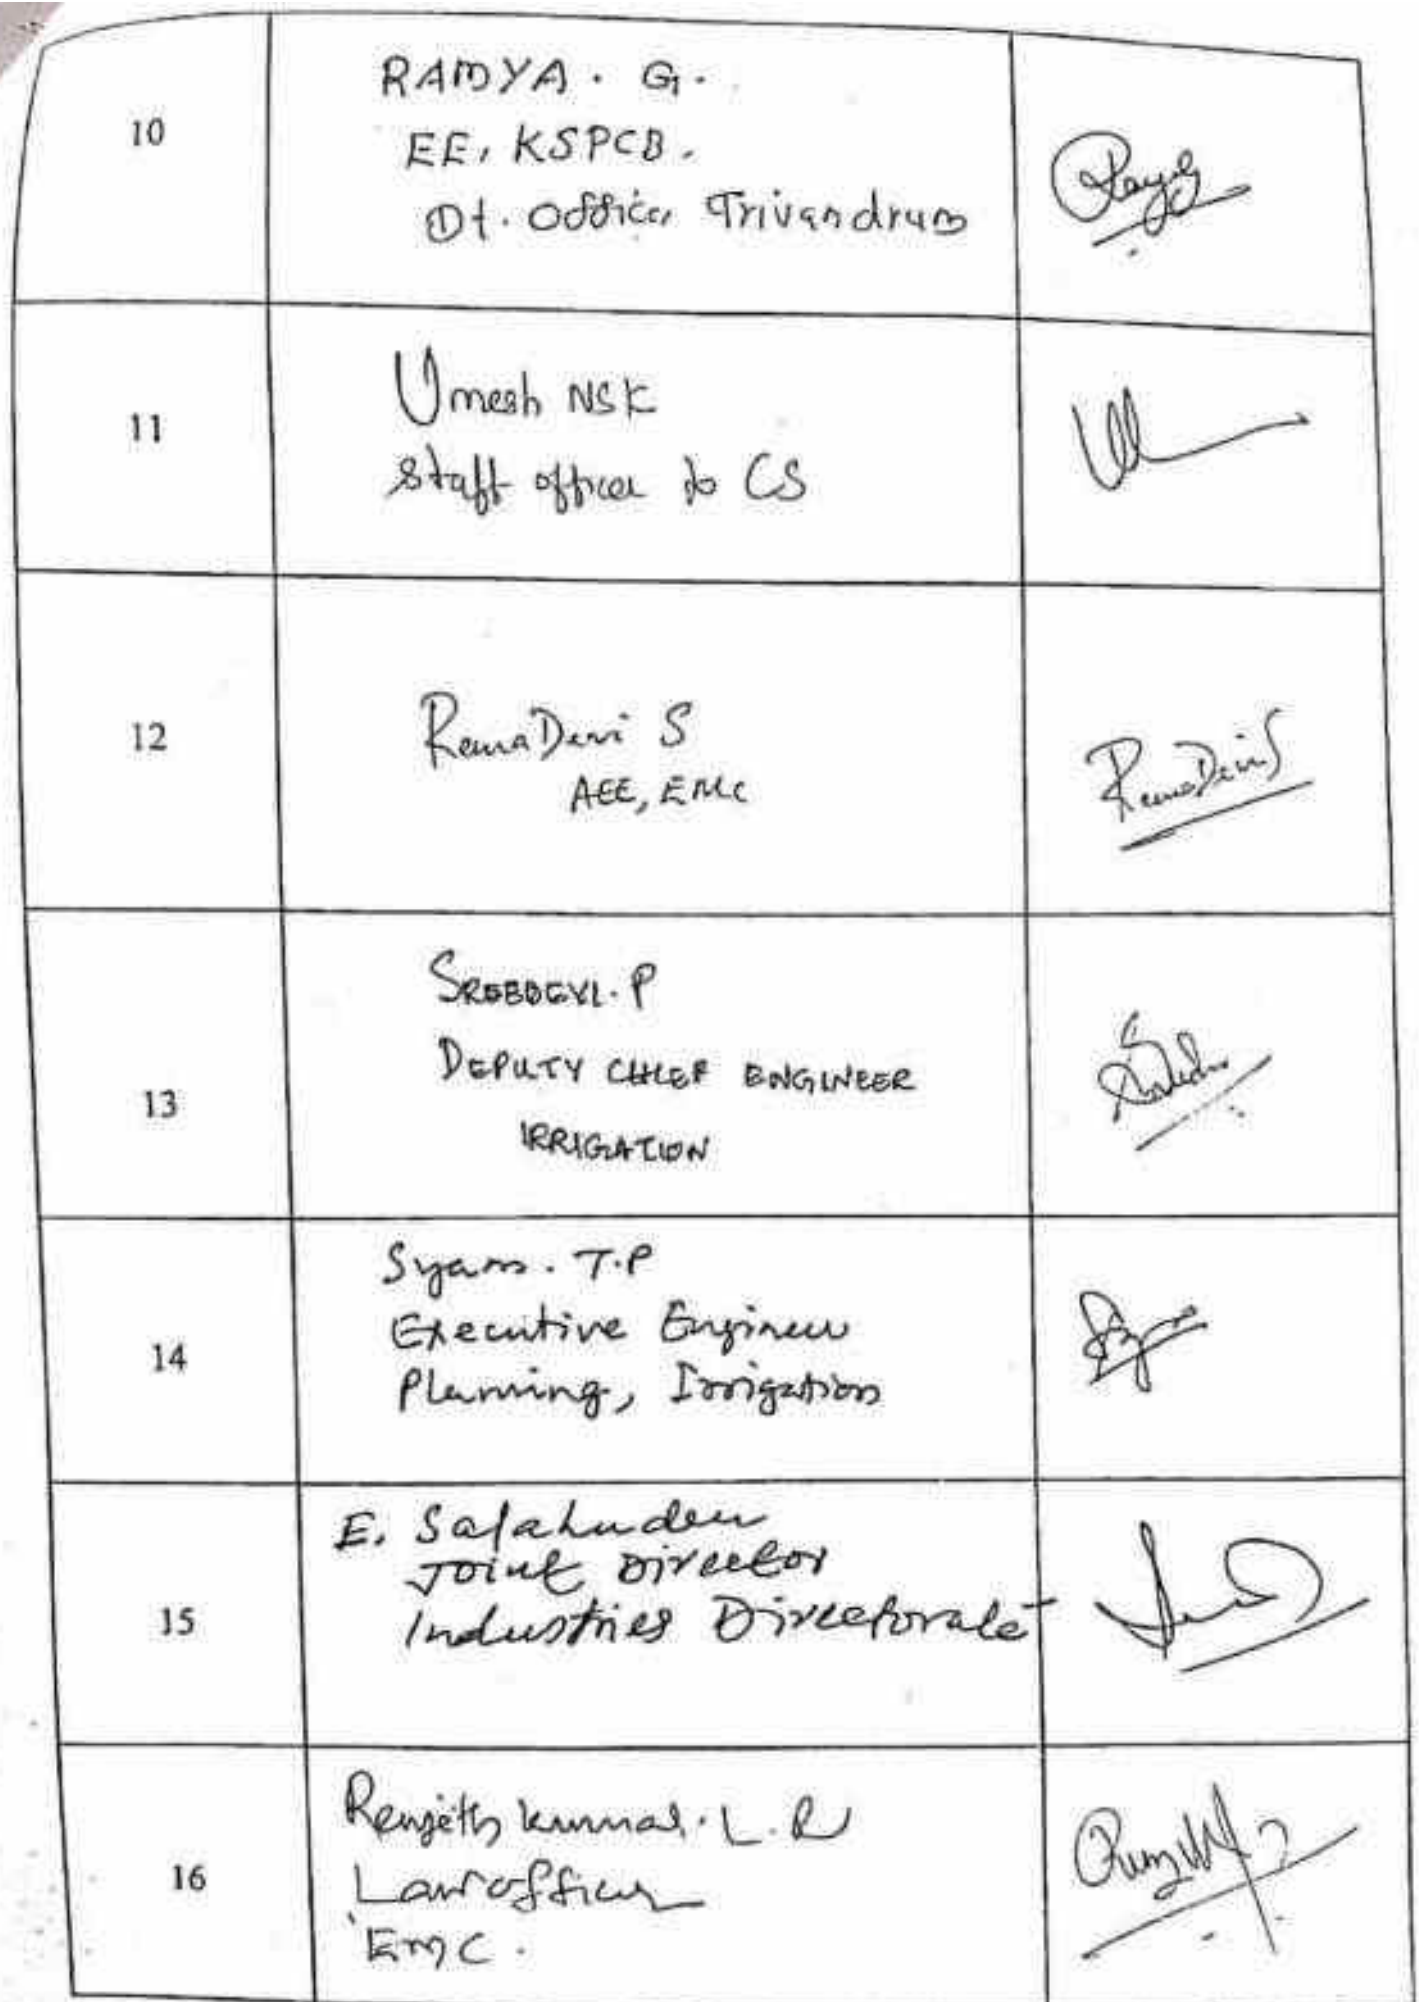 10
RAMYA. G.
EE, KSPCB.
Dt. Office, Trivandrum
11
Umesh NSK
Staff officer to CS
12
Rema Devi S
AEE, EMC
Rema Devi S
13
SREEDEVI. P
DEPUTY CHIEF ENGINEER
IRRIGATION
14
Syam. T.P
Executive Engineer
Planning, Irrigation
15
E. Salahudeen
Joint Director
Industries Directorate
16
Renjith kumar. L. R
Law officer
EMC.